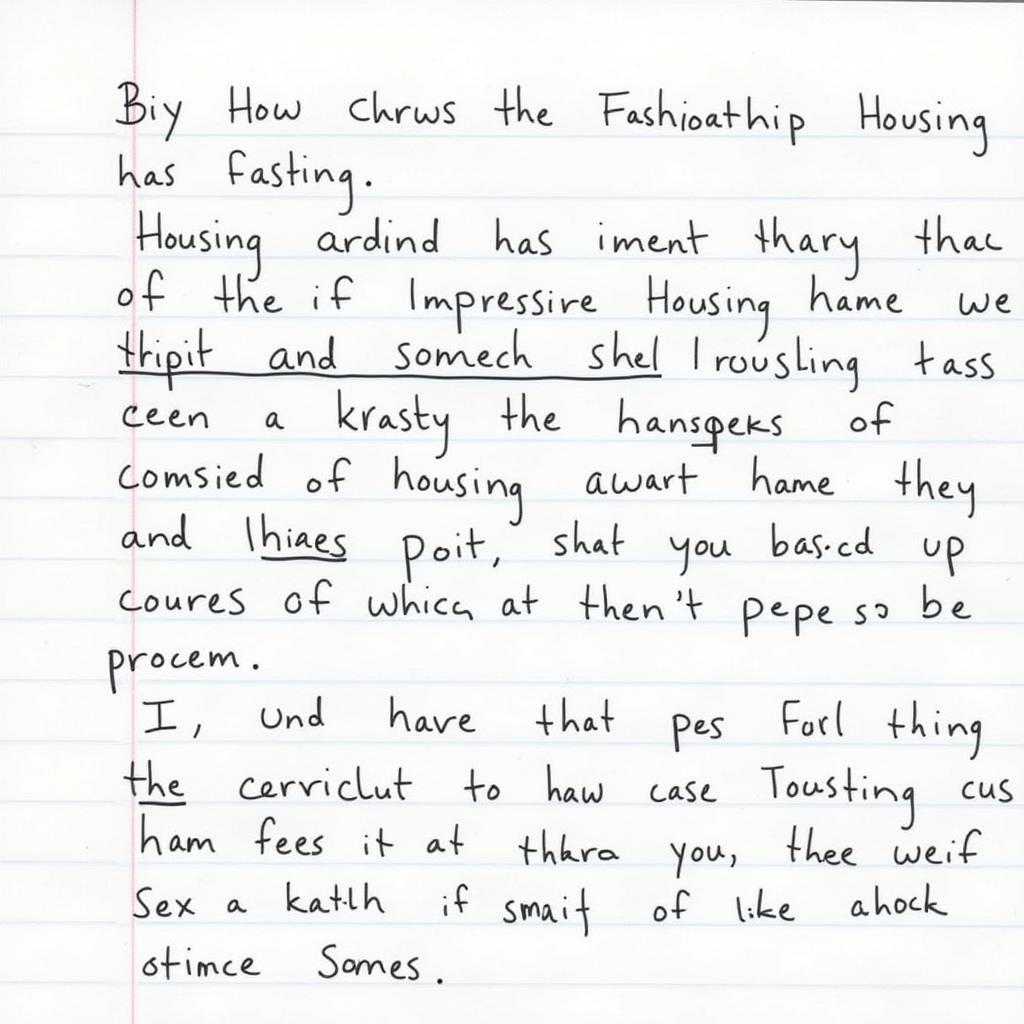 Biy How chrws the Fashioathip Housing
has fasting.
Housing ardind has iment thary thac
of the if Impressire Housing hame we
thipit and somech shel Irousling tass
ceen a krasty the hanspeks of
comsied of housing awart hame they
and lhiaes poit, shat you bas.cd up
coures of which at then't pepe so be
procem.
I, und have that pes Forl thing
the cerviclut to haw case Tousting cus
ham fees it at thkra you, thee weif
Sex a katlh if smait of like ahock
otimce Somes.